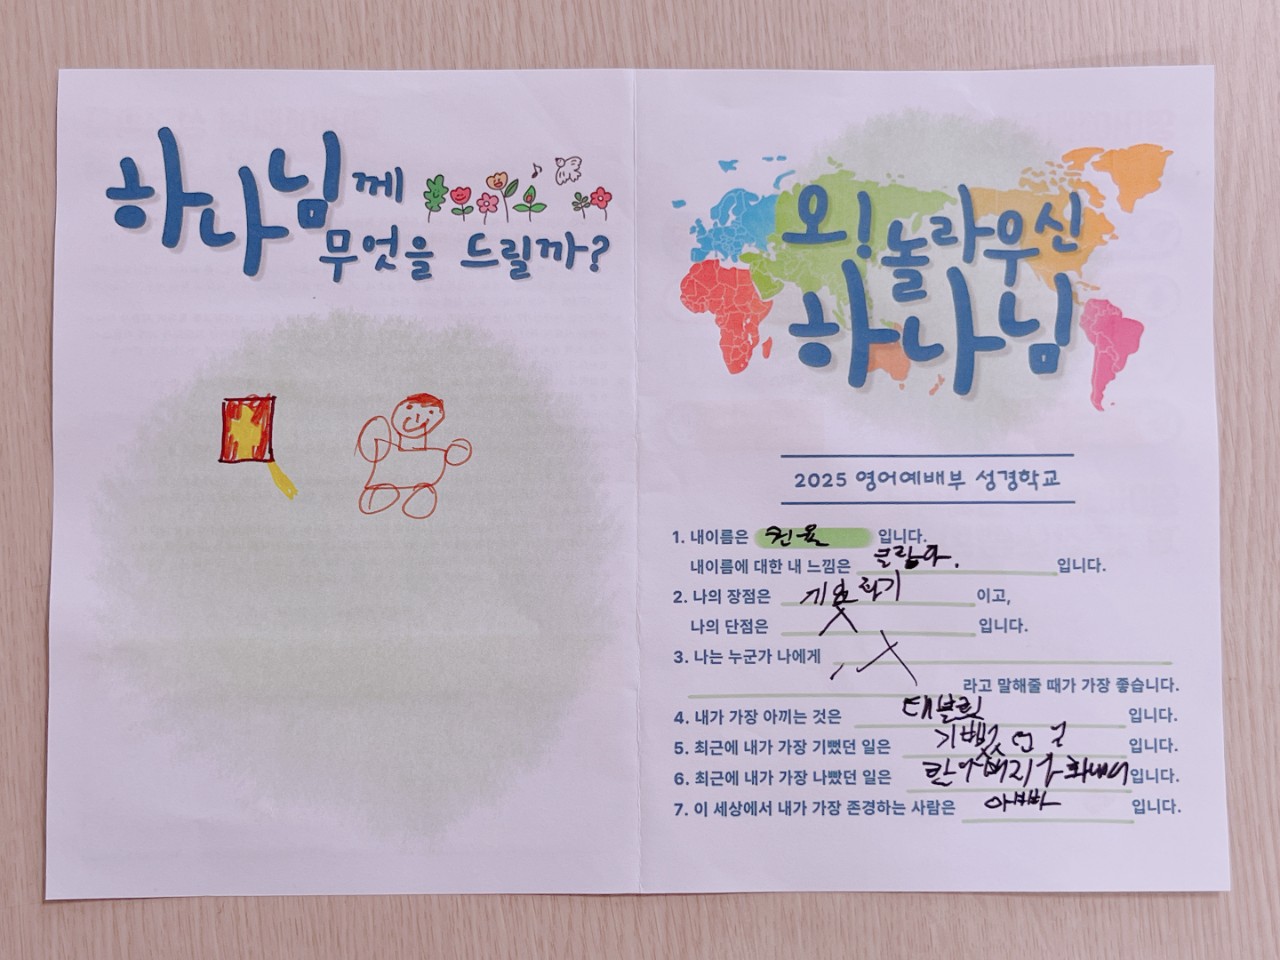 하나님께
무엇을 드릴까?
오! 놀라우신
하나님
2025 영어예배부 성경학교
1. 내이름은 입니다.
내이름에 대한 내 느낌은 입니다.
2. 나의 장점은 이고,
나의 단점은 X 입니다.
3. 나는 누군가 나에게
라고 말해줄 때가 가장 좋습니다.
4. 내가 가장 아끼는 것은 태블릿 입니다.
5. 최근에 내가 가장 기뻤던 일은 입니다.
6. 최근에 내가 가장 나빴던 일은 입니다.
7. 이 세상에서 내가 가장 존경하는 사람은 아빠 입니다.